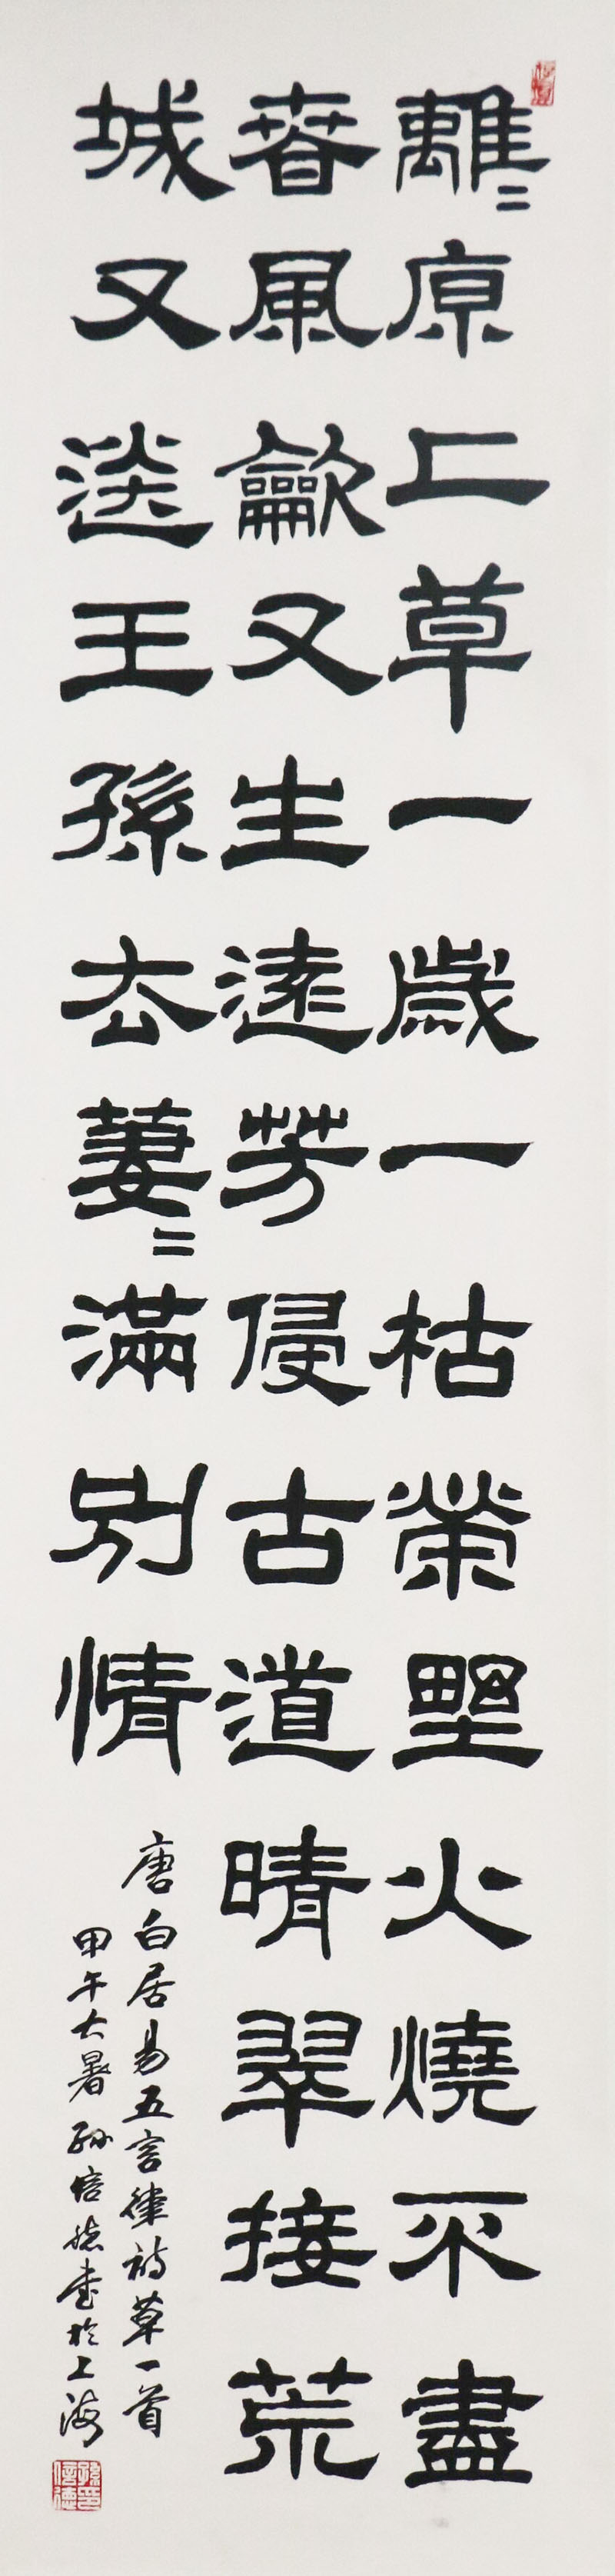 離〻原上草一歲一枯榮野火燒不盡
春風龡又生遠芳侵古道晴翠接荒
城又送王孫去萋〻滿別情
唐白居易五言律詩草一首
甲午大暑孫信德書於上海
孫印信德